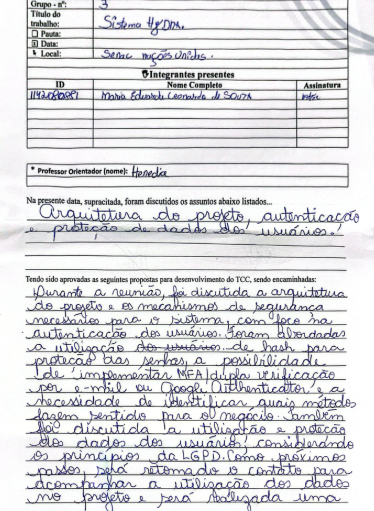 Grupo - nº: 3
Título do
trabalho: Sistema HyDNA.
☐ Pauta:
Data:
Local: Senac nações Unidas.
Integrantes presentes
ID Nome Completo Assinatura
Maria Eduarda Leonardo de Souza
* Professor Orientador (nome): Heredia
Na presente data, supracitada, foram discutidos os assuntos abaixo listados...
Arquitetura do projeto, autenticação
e proteção de dados dos usuários.
Tendo sido aprovadas as seguintes propostas para desenvolvimento do TCC, sendo encaminhadas:
Durante a reunião, foi discutida a arquitetura
do projeto e os mecanismos de segurança
necessários para o sistema, com foco na
autenticação dos usuários. Foram abordadas
a utilização dos usuários de hash para
proteção das senhas, a possibilidade
de implementar MFA/dupla verificação
por e-mail ou Google Authenticator e a
necessidade de identificar quais métodos
fazem sentido para o negócio. Também
foi discutida a utilização e proteção
dos dados dos usuários, considerando
os princípios da LGPD. Como próximos
passos, será retomado o contato para
acompanhar a utilização dos dados
no projeto e será realizada uma